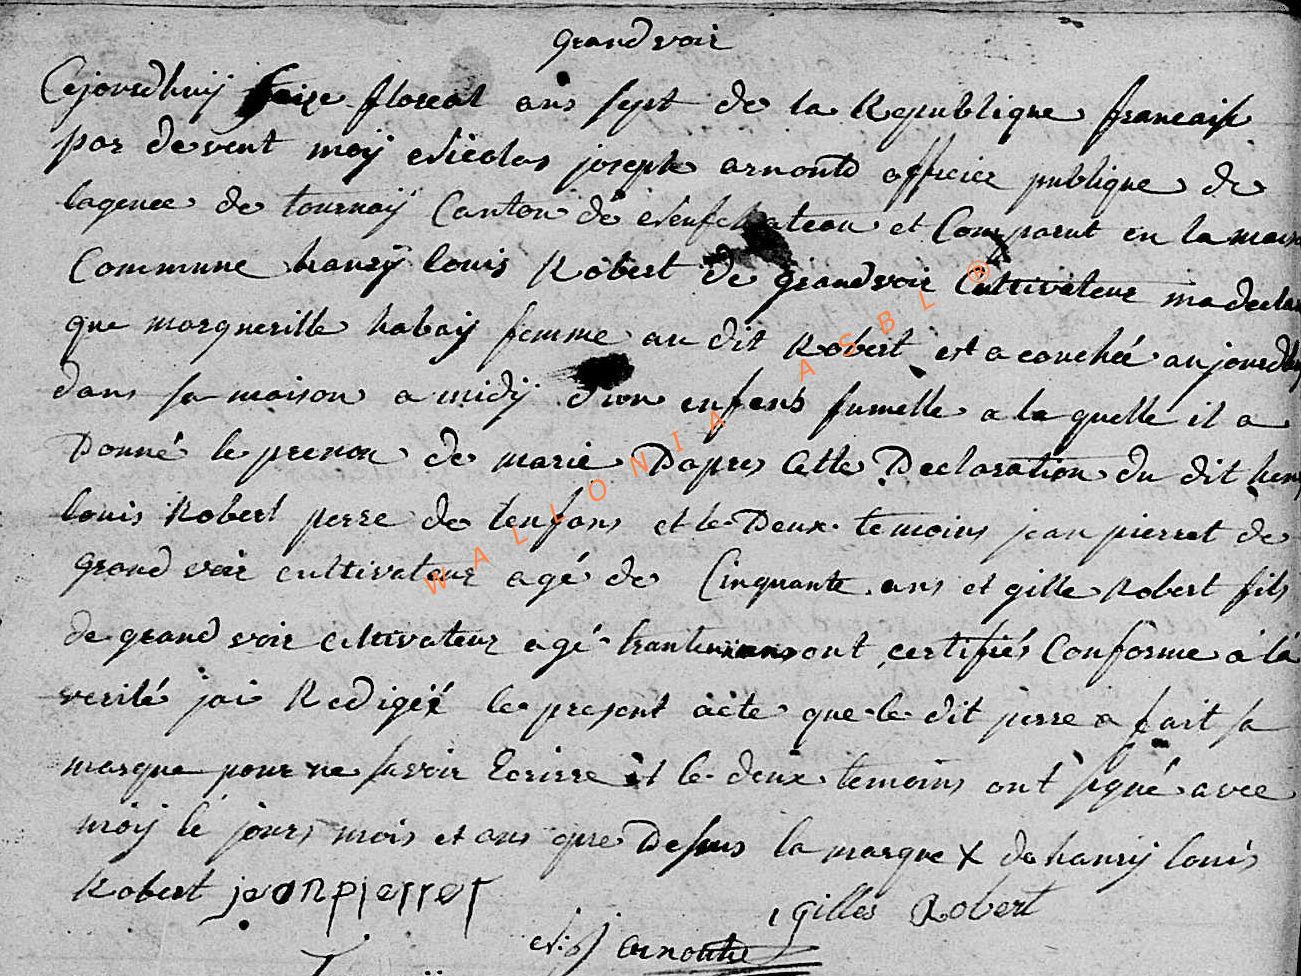 Grandvoir
Cejourdhuÿ seize floreal ans sept de la Republique francaise
par devent moÿ Nicolas joseph arnould officier publique de
lagence de tournaÿ Canton de Neufchateau et Comparut en la maison
Commune hanrÿ louis Robert de grandvoir Cultivateur ma declar
que marguerille habaÿ femme au dit Robert est a couchée aujourdhuy
dans sa maison a midÿ d'un enfens fumelle a la quelle il a
Donné le prenon de marie Dapres Cette Declaration du dit hen
louis Robert perre de lenfans et le Deux temoins jean pierret de
grand voir cultivateur agé de Cinquante ans et gille Robert fils
de grand voir cultivateur agé ont certifiés Conforme a la
verité jai Redigéz le present acte que le dit perre a fait sa
marque pour ne savoir Ecrirre et le deux temoins ont signé avec
moÿ le jours mois et ans que Desus la marque X de hanrÿ louis
Robert jeanpierret
gilles Robert
N: j arnould
WALLONIA ASBL ®